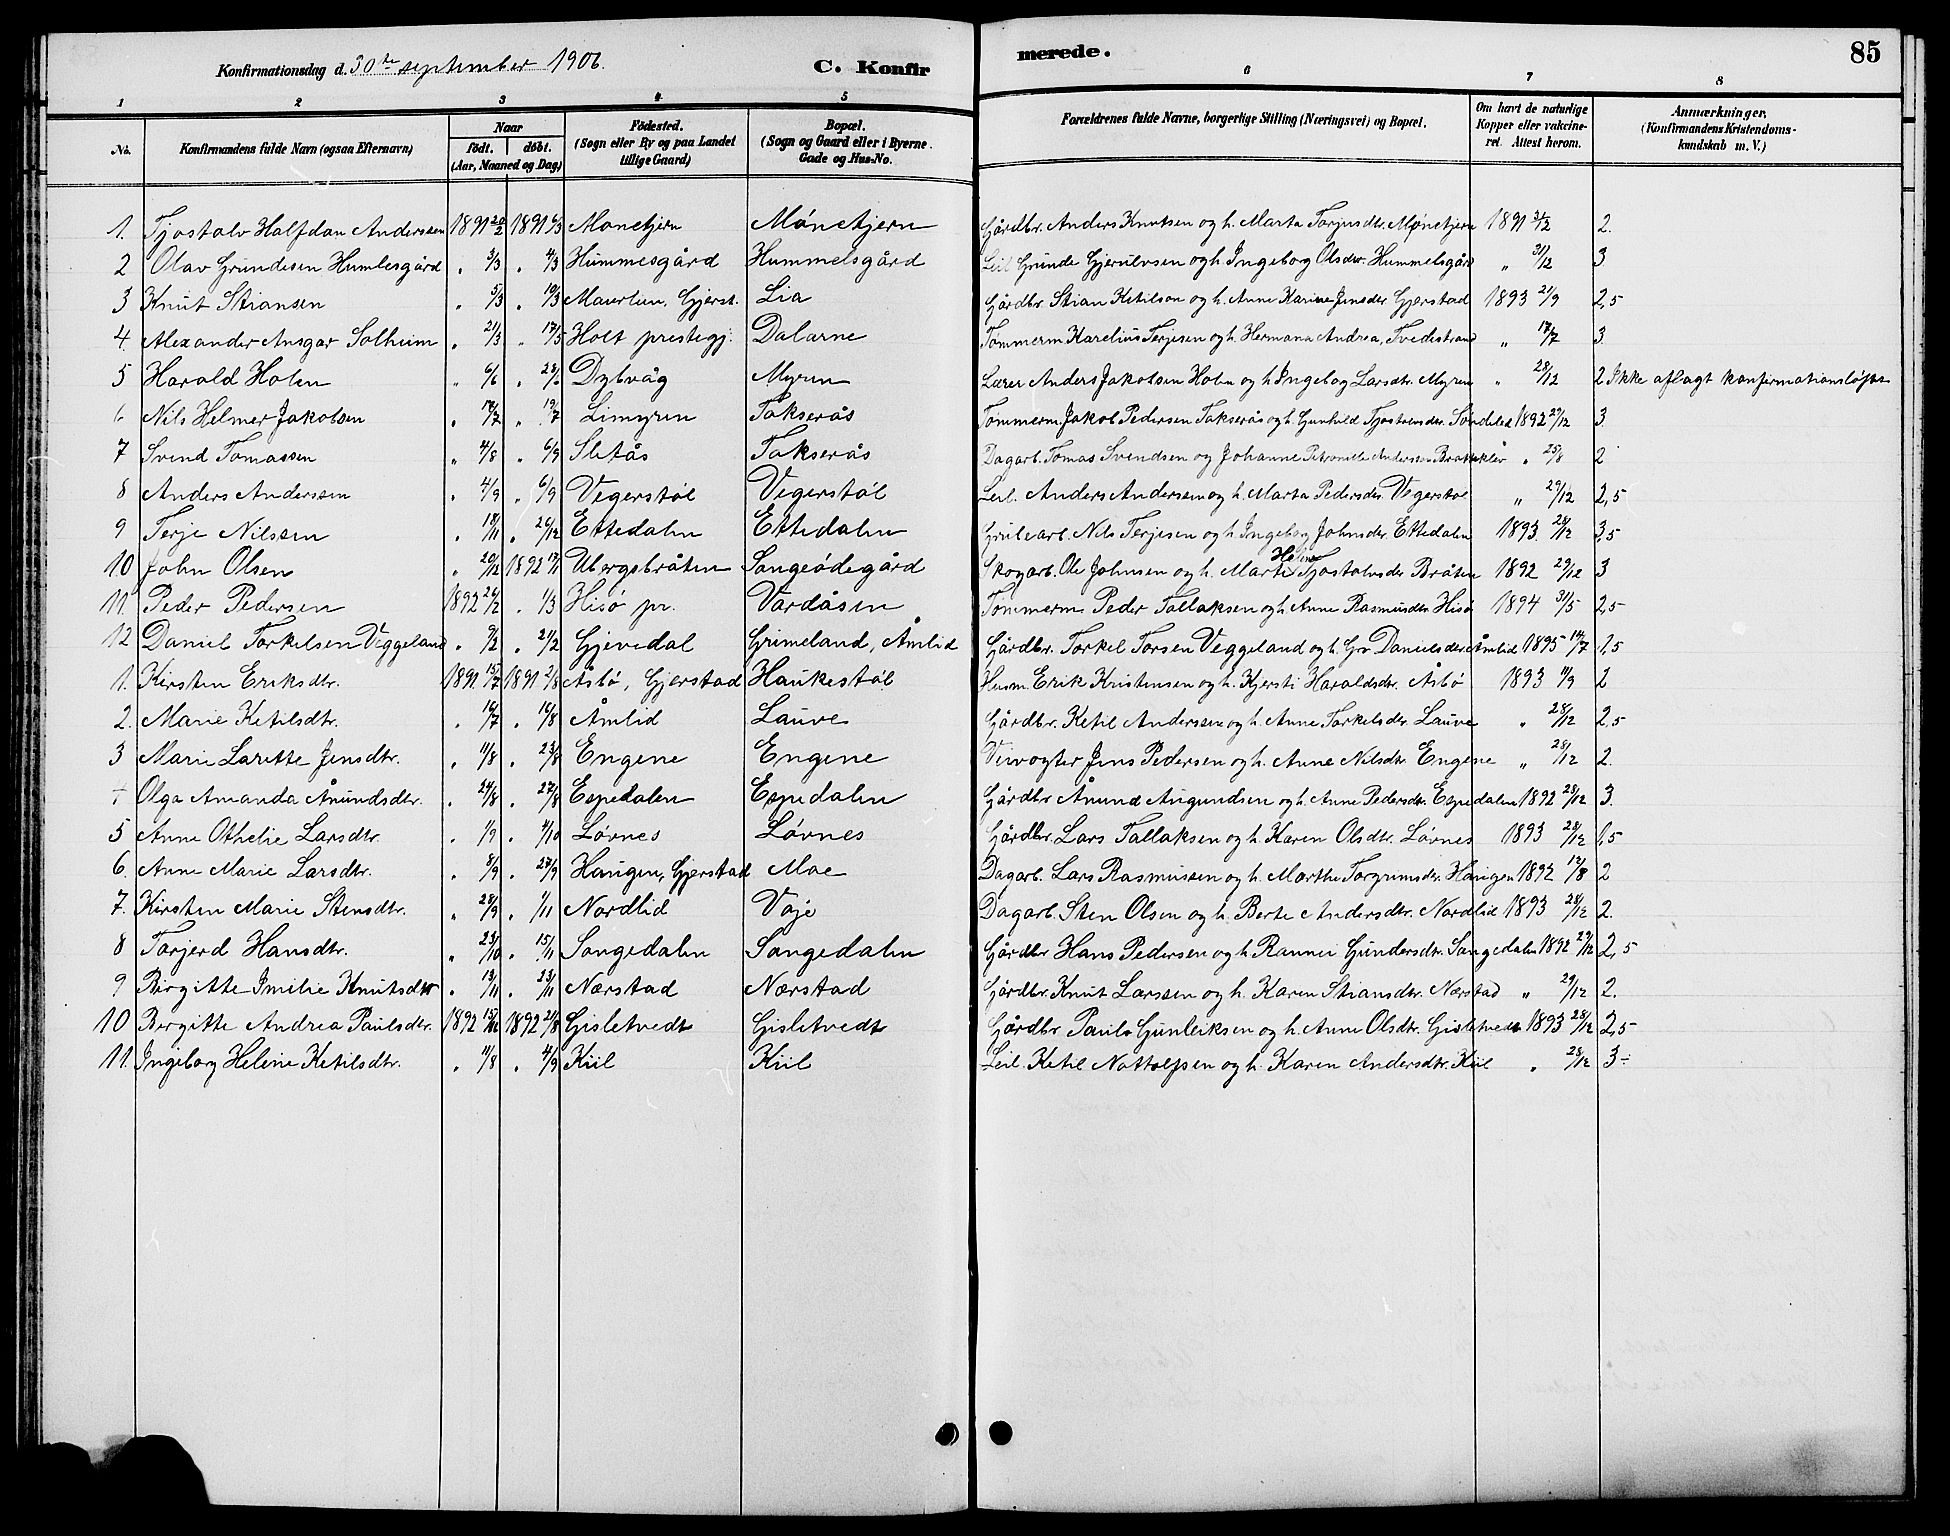 Konfirmationsdag d. 30te september 1906. C. Konfirmerede. 85
1 2 3 4 5 6 7 8
No. Konfirmandens fulde Navn (ogsaa Efternavn) Naar født. døbt. (Aar, Maaned og Dag) Fødested. (Sogn eller By og paa Landet tillige Gaard) Bopæl. (Sogn og Gaard eller i Byerne Gade og Hus-No. Forældrenes fulde Navne, borgerlige Stilling (Næringsvei) og Bopæl. Om havt de naturlige Kopper eller vakcineret. Attest herom. Anmærkninger. (Konfirmandens Kristendomskundskab m. V.)
1. Tjostolv Halfdan Anderssen 1891 20/2 1891 6/3 Monetjern Mónetjern Gårdbr. Anders Knutsen og h. Marta Torjusdtr. Mónetjern 1891 31/12 2.
2 Olav Grundesen Humlesgård " 3/3 " 4/3 Hummesgård Hummelsgård Leil Grunde Gjerulvsen og h. Ingebog Olsdtr. Hummelsgård " 31/12 3
3 Knut Stiansen " 5/3 " 10/3 Gjerst. Lia Gårdbr. Stian Ketilsen og h. Anne Karine Jensdtr Gjerstad 1893 21/9 2,5
4. Alexander Ansgar Solheim " 21/3 " 17/5 Holt prestegj. Dalarne Tømmerm Karelius Terjesen og h. Hermana Andrea, Tvedestrand " 17/7 3
5 Harald Holm " 6/6 " 28/6 Dybvåg Myren Lærer Anders Jakobsen Holm og h Ingebog Larsdtr. Myren " 28/12 2 Ikke aflagt konfirmationsløfte
6 Nils Helmer Jakobsen " 17/7 " 19/7 Limyren Takserås Tømmerm. Jakob Pedersen Takserås og h. Gunhild Søndeled 1892 29/12 3.
7 Svend Tomassen " 4/8 " 6/9 Slitås Takserås Dagarb. Tomas Svendsen og Johanne Petronille Anderssen " 25/8 2
8 Anders Anderssen " 4/9 " 6/9 Vegerstøl Vegerstøl Leil. Anders Anderssen og h. Marta Pedersdtr. Vegerstøl " 29/12 2,5
9 Terje Nilssen " 18/11 " 26/12 Ettedalen Ettedalen Nils Terjesen og h. Ingeborg Johnsdtr. Ettedalen 1893 28/12 3,5
10 John Olsen " 20/12 1892 17/1 Ubergsbråten Songeódegård Skogarb. Ole Johnsen og h. Marte Helene Tjostolvsdtr Bråten 1892 29/12 3
11. Peder Pedersen 1892 26/2 " 1/3 Hisø pr. Vardåsen Tømmerm Peder Tallaksen og h. Anne Rasmusdtr Hisø 1894 31/5 2,5
12 Daniel Torkelsen Veggeland " 9/2 " 21/2 Gjøvedal Grimeland, Åmlid Gårdbr. Torkel Torsen Veggeland og h. Gro Danielsdtr. Åmlid 1895 14/7 1,5
1. Kirsten Eriksdtr. 1891. 15/7 1891 2/8 Åsbø, Gjerstad Haukestøl Husm. Erik Kristensen og h. Kjersti Haraldsdtr. Åsbø 1893 11/9 2
2. Marie Ketilsdtr. " 16/7 " 16/8 Åmlid Lauve Gårdbr. Ketil Anderssen og h. Anne Torkelsdtr. Lauve " 28/12 2,5
3 Marie Larette Jensdtr. " 11/8 " 23/8 Engene Engene Veivogter Jens Pedersen og h. Anne Nilsdtr Engene " 28/12 2.
4 Olga Amanda Ånundsdtr. " 24/8 " 27/8 Espedalen Espedalen Gårdbr Ånund Augundsen og h. Anne Pedersdtr. Espedalen 1892 28/12 3.
5 Anne Othelie Larsdtr. " 1/9 " 4/10 Lóvnes Lóvnes Gårdbr. Lars Tallaksen og h. Karen Olsdtr. Lóvnes 1893 28/12 1,5
6. Anne Marie Larsdtr. " 8/9 " 27/9 Haugen, Gjerstad Moe Dagarb. Lars Rasmussen og h. Marthe Torgrimsdtr. Haugen 1892 12/8 2
7. Kirsten Marie Stensdtr. " 28/9 " 1/11 Nordlid Vaje Dagarb. Sten Olsen og h. Berte Andersdtr. Nordlid 1893 28/12 2.
8 Torjerd Hansdtr. " 23/10 " 15/11 Songedalen Songedalen Gårdbr Hans Pedersen og h. Rannei Gundersdtr. Songedalen 1892 29/12 2,5
9 Birgitte Imilie Knutsdtr " 13/11 " 23/11 Nærstad Nærstad Gårdbr. Knut Larssen og h. Karen Stiansdtr. Nærstad " 29/12 2.
10 Bergitte Andrea Paulsdtr. 1892 1892 21/8 Gisletvedt Gisletvedt Gårdbr Paul Gunleiksen og h. Anne Olsdtr. Gisletvedt 1893 28/12 2,5
11. Ingeborg Helene Ketilsdtr. " 11/8 " 4/9 Kiil Kiil Leil. Ketil Nottolfsen og h. Karen Andersdtr. Kiil " 28/12 3-